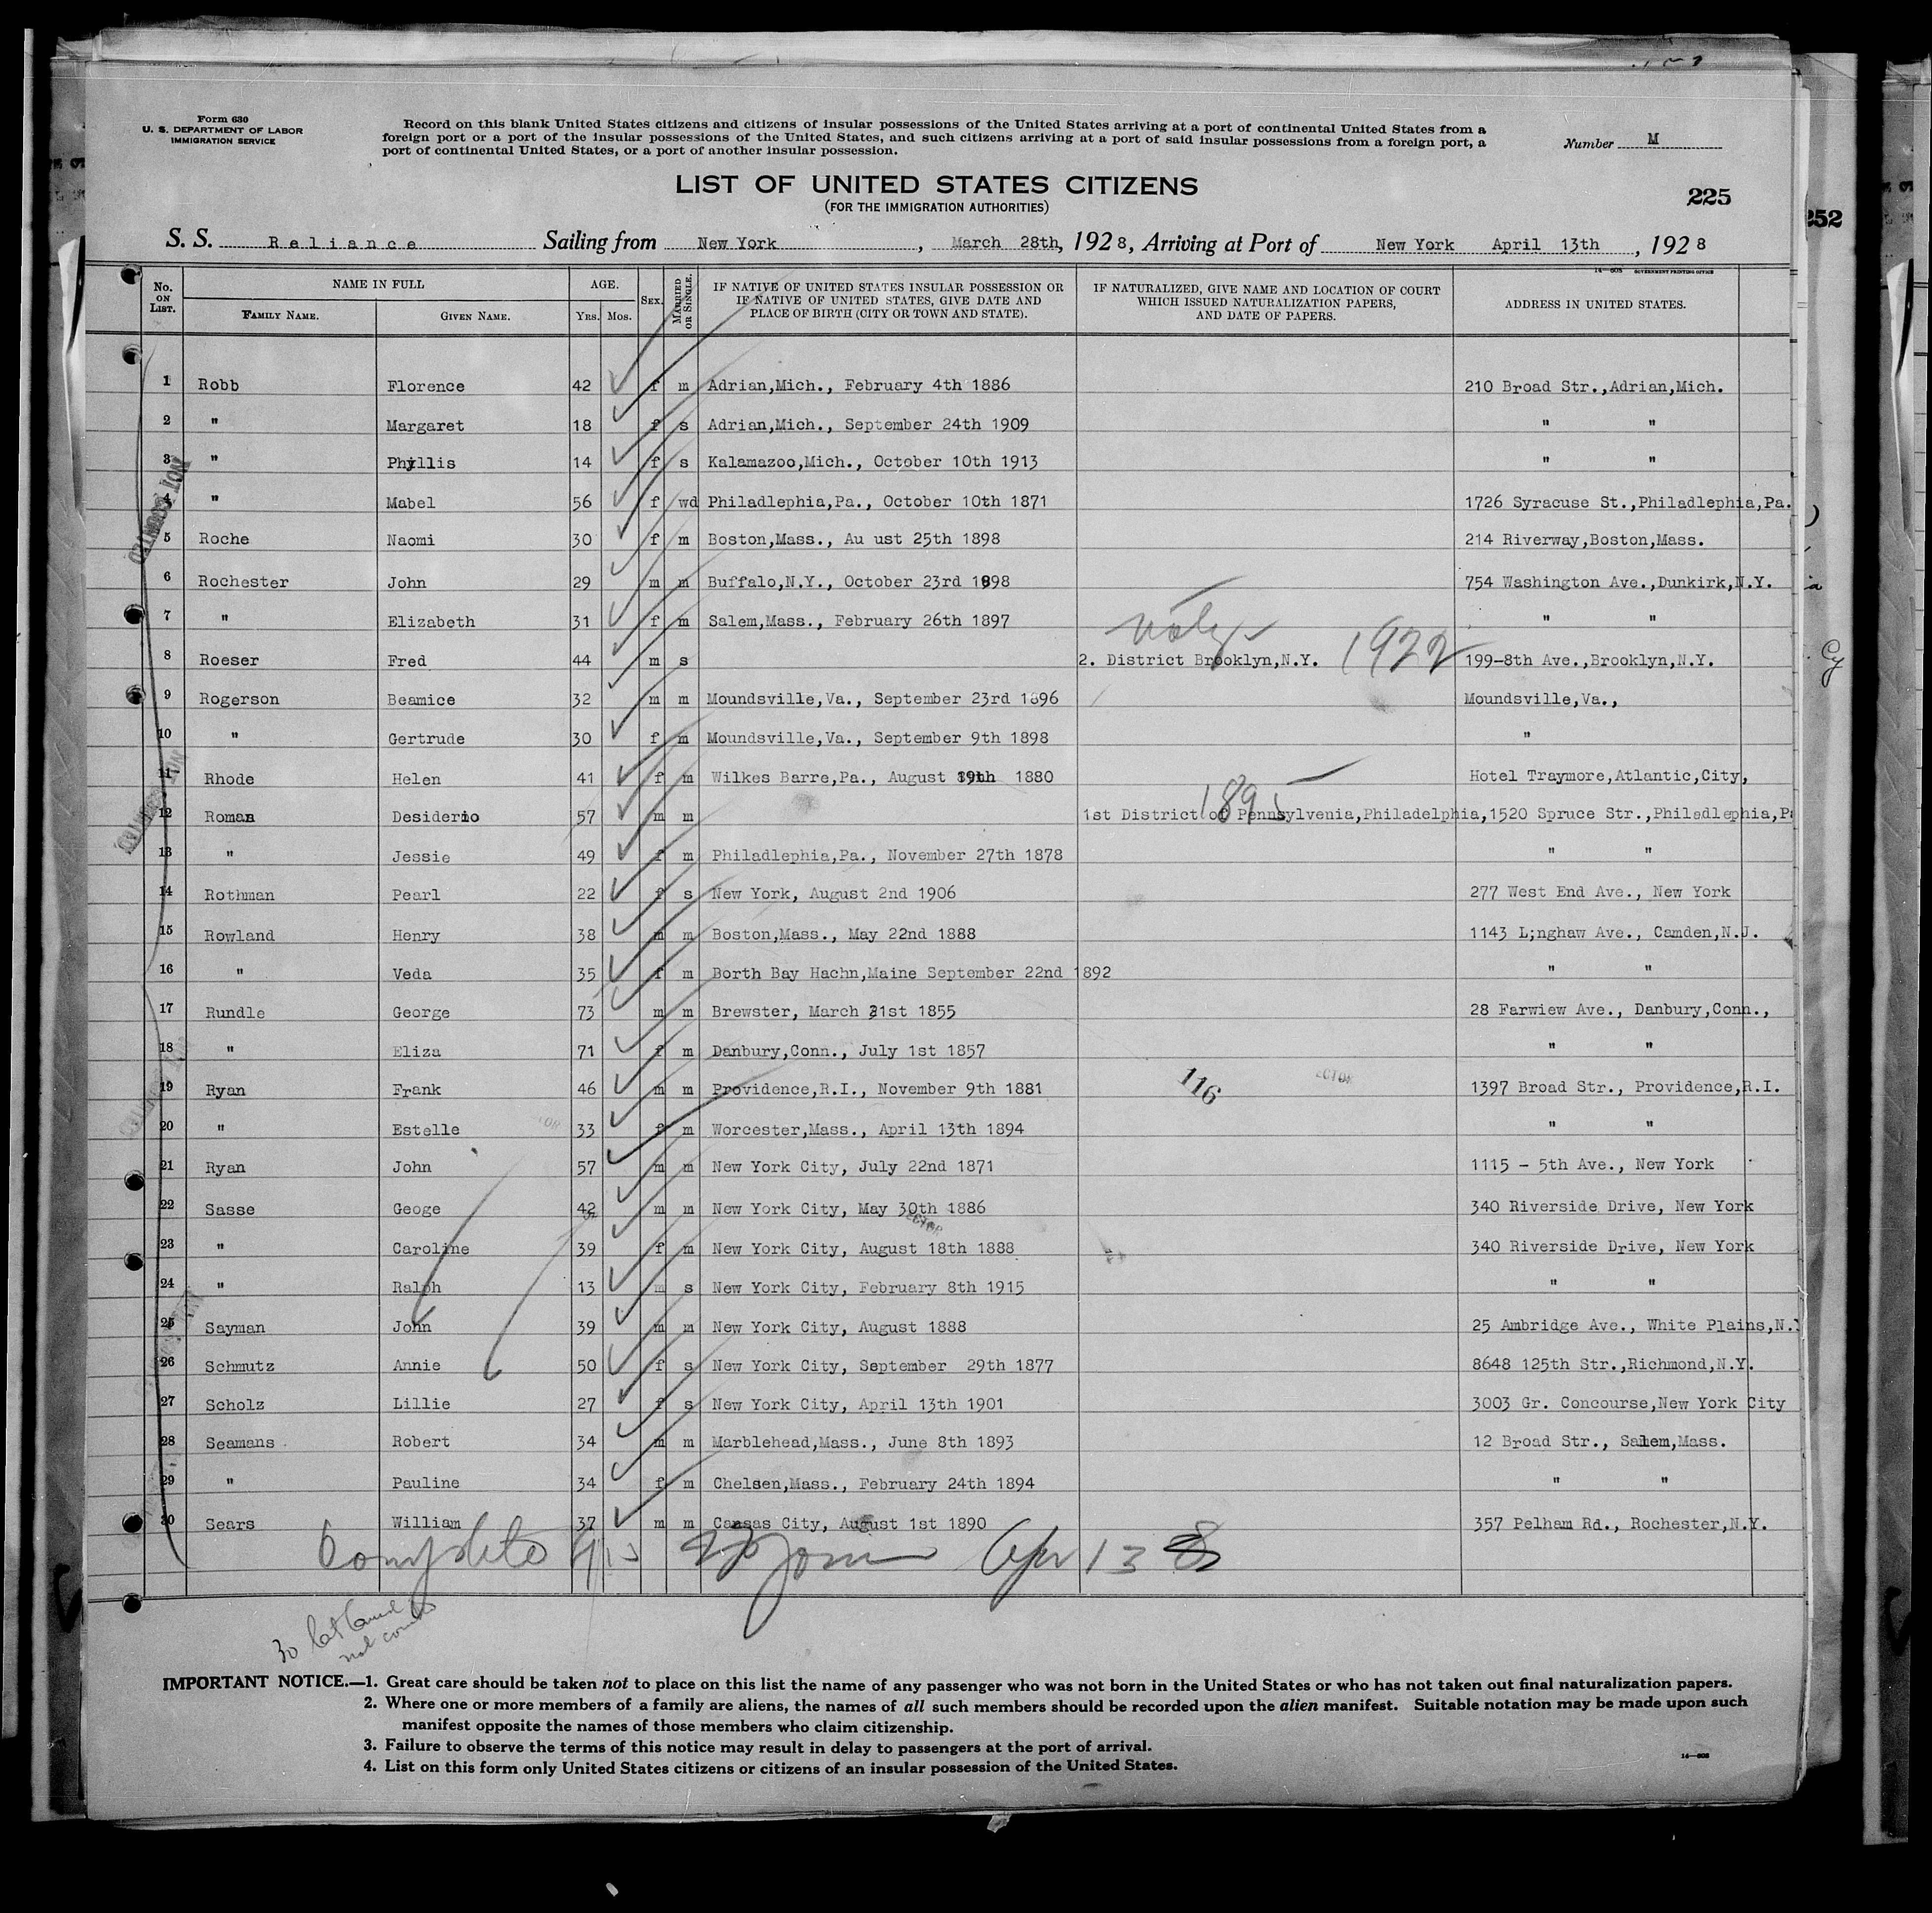 Form 630
U. S. DEPARTMENT OF LABOR
IMMIGRATION SERVICE
Record on this blank United States citizens and citizens of insular possessions of the United States arriving at a port of continental United States from a
foreign port or a port of the insular possessions of the United States, and such citizens arriving at a port of said insular possessions from a foreign port, a
port of continental United States, or a port of another insular possession.
Number M
LIST OF UNITED STATES CITIZENS
(FOR THE IMMIGRATION AUTHORITIES)
225
252
S. S. Reliance Sailing from New York, March 28th, 1928, Arriving at Port of New York April 13th, 1928
14—608 GOVERNMENT PRINTING OFFICE
No. ON LIST. NAME IN FULL AGE. SEX. MARRIED OR SINGLE. IF NATIVE OF UNITED STATES INSULAR POSSESSION OR IF NATIVE OF UNITED STATES, GIVE DATE AND PLACE OF BIRTH (CITY OR TOWN AND STATE). IF NATURALIZED, GIVE NAME AND LOCATION OF COURT WHICH ISSUED NATURALIZATION PAPERS, AND DATE OF PAPERS. ADDRESS IN UNITED STATES.
FAMILY NAME. GIVEN NAME. YRS. MOS.
1 Robb Florence 42 f m Adrian,Mich., February 4th 1886 210 Broad Str.,Adrian,Mich.
2 " Margaret 18 f s Adrian,Mich., September 24th 1909 " "
3 " Phyllis 14 f s Kalamazoo,Mich., October 10th 1913 " "
4 " Mabel 56 f wd Philadlephia,Pa., October 10th 1871 1726 Syracuse St.,Philadlephia,Pa.
NOT COUNTED
5 Roche Naomi 30 f m Boston,Mass., Au ust 25th 1898 214 Riverway,Boston,Mass.
6 Rochester John 29 m m Buffalo,N.Y., October 23rd 1898 754 Washington Ave.,Dunkirk,N.Y.
7 " Elizabeth 31 f m Salem,Mass., February 26th 1897 " "
8 Roeser Fred 44 m s 2. District Brooklyn,N.Y. 1922 199-8th Ave.,Brooklyn,N.Y.
9 Rogerson Beamice 32 m m Moundsville,Va., September 23rd 1896 Moundsville,Va.,
10 " Gertrude 30 f m Moundsville,Va., September 9th 1898 "
11 Rhode Helen 41 f m Wilkes Barre,Pa., August 19th 1880 Hotel Traymore,Atlantic,City,
1895
12 Roman Desiderio 57 m m 1st District of Pennsylvenia,Philadelphia, 1520 Spruce Str.,Philadlephia,Pa
13 " Jessie 49 f m Philadlephia,Pa., November 27th 1878 " "
14 Rothman Pearl 22 f s New York, August 2nd 1906 277 West End Ave., New York
15 Rowland Henry 38 m m Boston,Mass., May 22nd 1888 1143 L;nghaw Ave., Camden,N.J.
16 " Veda 35 f m Borth Bay Hachn,Maine September 22nd 1892 " "
17 Rundle George 73 m m Brewster, March 21st 1855 28 Farwiew Ave., Danbury,Conn.,
18 " Eliza 71 f m Danbury,Conn., July 1st 1857 " "
19 Ryan Frank 46 m m Providence,R.I., November 9th 1881 116 1397 Broad Str., Providence,R.I.
20 " Estelle 33 f m Worcester,Mass., April 13th 1894 " "
21 Ryan John 57 m m New York City, July 22nd 1871 1115 - 5th Ave., New York
22 Sasse Geoge 42 m m New York City, May 30th 1886 340 Riverside Drive, New York
23 " Caroline 39 f m New York City, August 18th 1888 340 Riverside Drive, New York
24 " Ralph 13 m s New York City, February 8th 1915 " "
25 Sayman John 39 m m New York City, August 1888 25 Ambridge Ave., White Plains,N.Y
26 Schmutz Annie 50 f s New York City, September 29th 1877 8648 125th Str.,Richmond,N.Y.
27 Scholz Lillie 27 f s New York City, April 13th 1901 3003 Gr. Concourse,New York City
28 Seamans Robert 34 m m Marblehead,Mass., June 8th 1893 12 Broad Str., Salem,Mass.
29 " Pauline 34 f m Chelsen,Mass., February 24th 1894 " "
30 Sears William 37 m m Cansas City, August 1st 1890 357 Pelham Rd., Rochester,N.Y.
Complete Apr 13 8
30
not
IMPORTANT NOTICE.—1. Great care should be taken not to place on this list the name of any passenger who was not born in the United States or who has not taken out final naturalization papers.
2. Where one or more members of a family are aliens, the names of all such members should be recorded upon the alien manifest. Suitable notation may be made upon such
manifest opposite the names of those members who claim citizenship.
3. Failure to observe the terms of this notice may result in delay to passengers at the port of arrival.
4. List on this form only United States citizens or citizens of an insular possession of the United States.
14—608